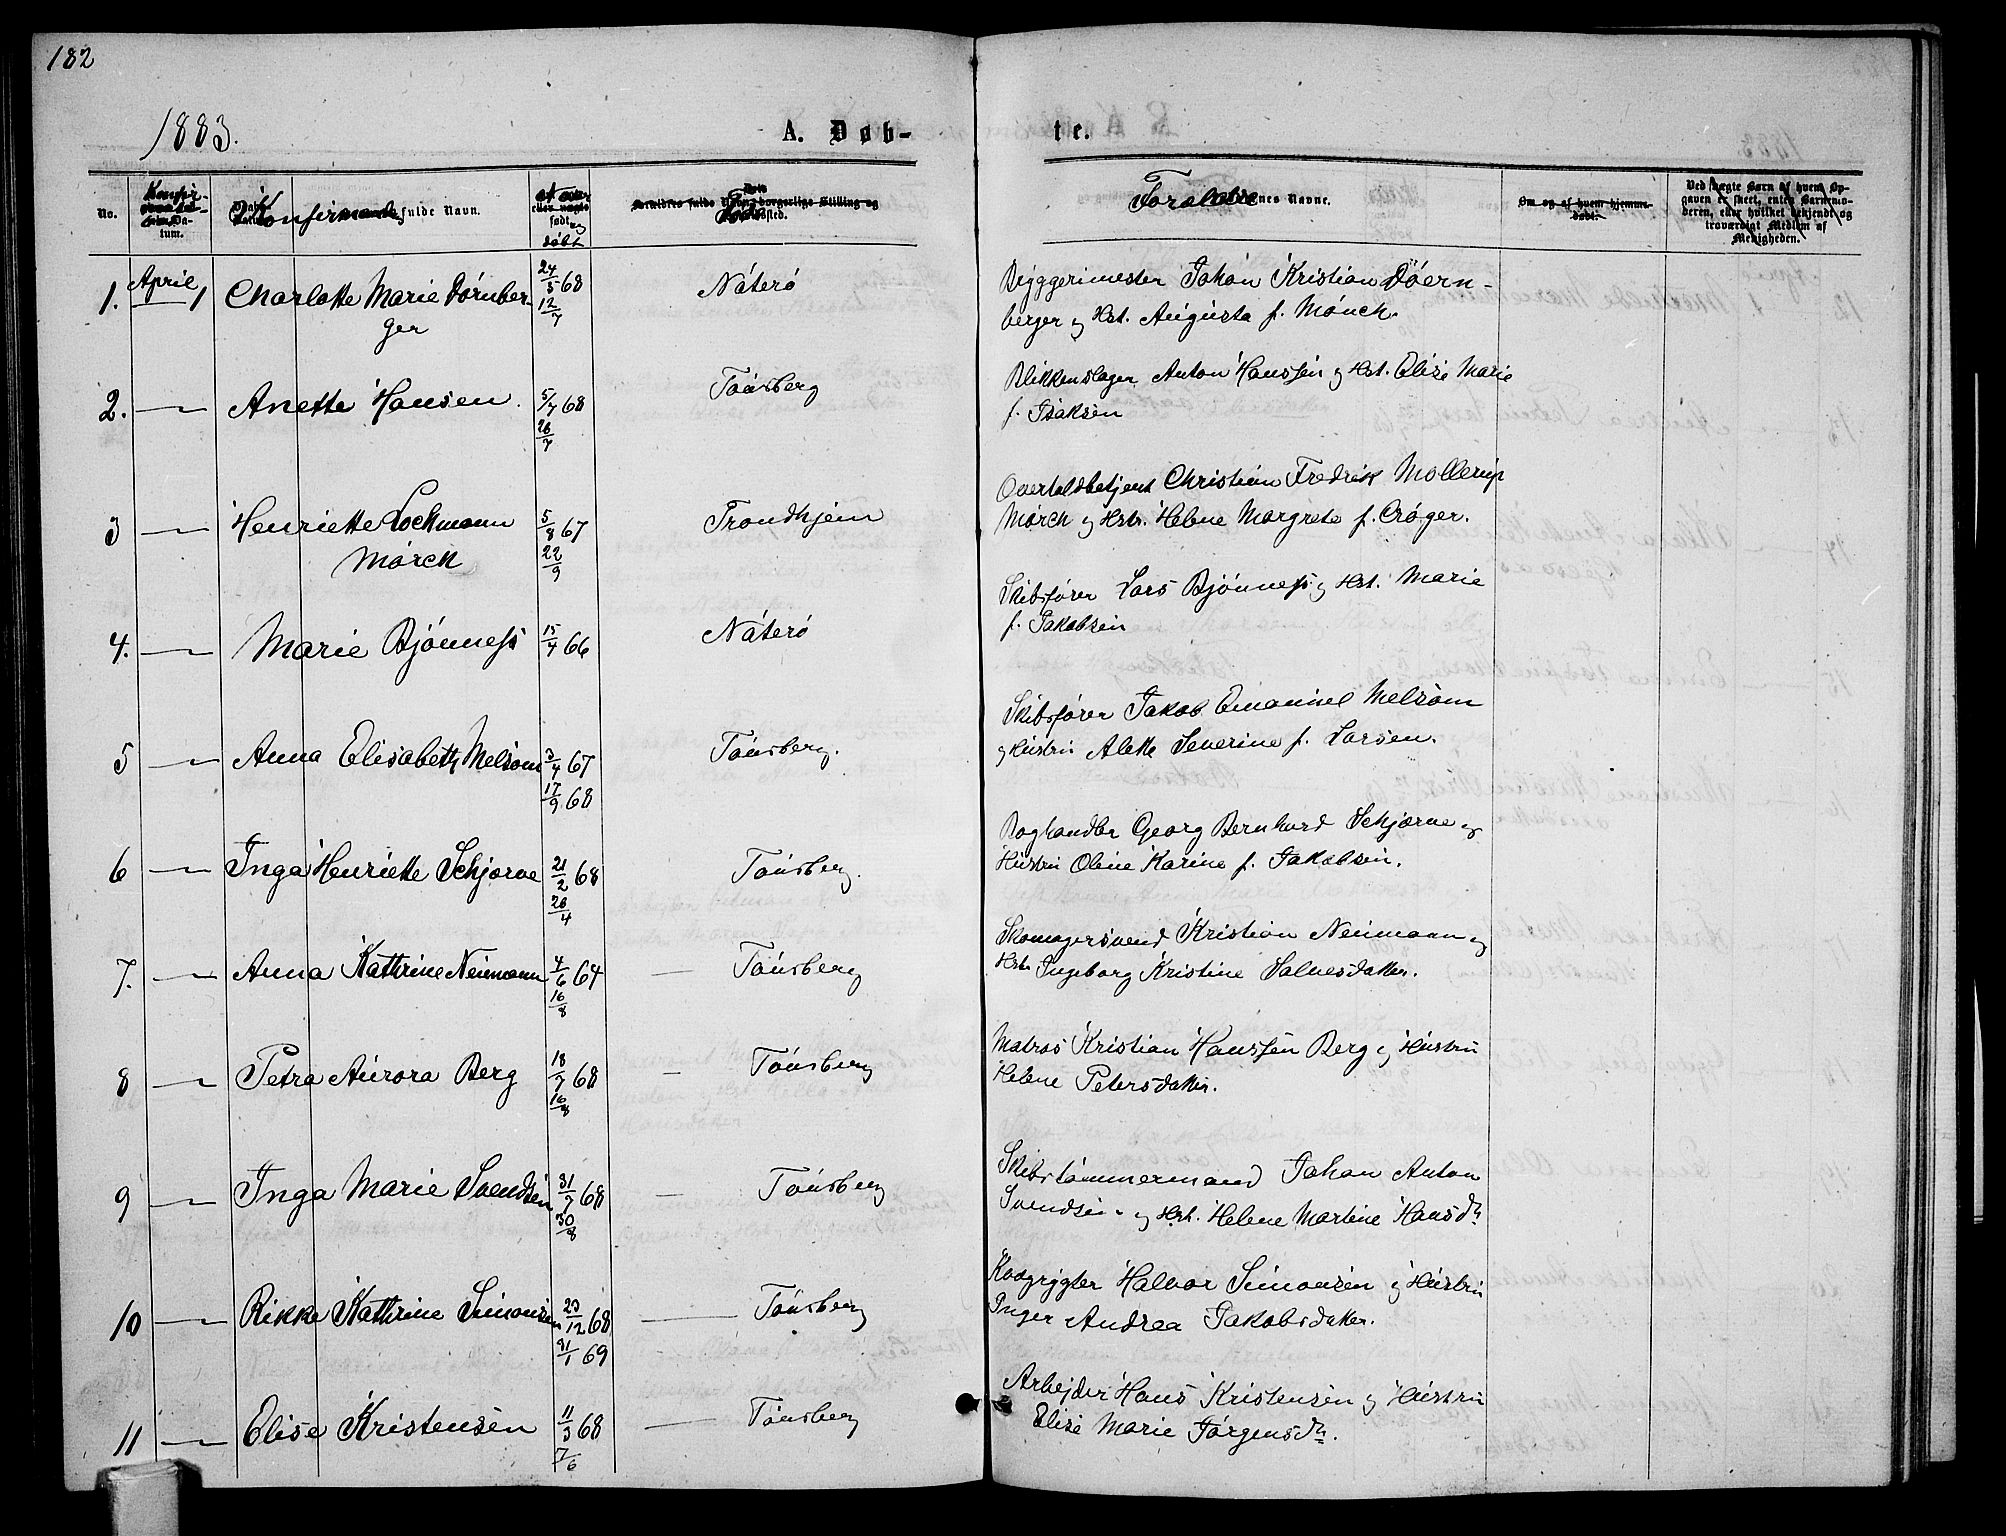 182
1883.
A. Døb-
te.
No.
Konfir-
Datum.
Konfirmandens fulde Navn.
født og
døbt
Fødested.
Forældrenes Navne.
Om og af hvem hjemme-
døbt.
Ved uægte Barn af hvem Op-
gaven er skeet, enten Barnemo-
deren, eller hvilket bekjendt og
troværdigt Medlem af
Menigheden.
1. April 1 Charlotte Marie Dörnber-
ger
24/5 68
12/7
Nøterø
Byggerimester Johan Kristian Döern-
berger og Hst. Augusta f. Mönch.
2. — Anette Hansen.
5/7 68
26/7
Tønsberg
Blikkenslager Anton Hanssen og Hst. Elise Marie
f. Isaksen
3 — Henriette Lochmann
Mørch
5/8 67
22/9
Trondhjem
Overtoldbetjent Christian Fredrik Mollerup
Mørch og Hstr. Helene Margrete f. Crøger.
4. — Marie Bjönness
15/4 66
Nøterø
Skibsfører Lars Bjönness og Hst. Marie
f. Jakobsen
5 — Anna Elisabeth Melsom
3/4 67
17/9 68
Tønsberg.
Skibsfører Jakob Emanuel Melsom
og Hustru Alette Severine f. Larsen.
6 — Inga Henriette Schjerve
21/2 68
26/4
Tønsberg.
Boghandler Georg Bernhard Schjerve og
Hustru Olene Karine f. Jakobsen.
7. — Anna Kathrine Neumann
4/6 64
16/8
— Tønsberg
Skomagersvend Kristian Neumann og
Hst. Ingeborg Kristine Salvesdatter.
8 — Petra Aurora Berg
18/7 68
16/8
— Tønsberg
Matros Kristian Hanssen Berg og Hustru
Helene Petersdatter.
9 — Inga Marie Svendsen
31/7 68
30/8
— Tønsberg
Skibstømmermand Johan Anton
Svendsen og Hst. Helene Martine Hansdtr
10 — Rikke Kathrine Simonsen
23/12 68
31/1 69
— Tønsberg
Halvor Simonsen og Hustru
Inger Andrea Jakobsdatter.
11 — Elise Kristensen
11/3 68
7/6
— Tønsberg
Arbejder Hans Kristensen og Hustru
Elise Marie Jørgensdtr